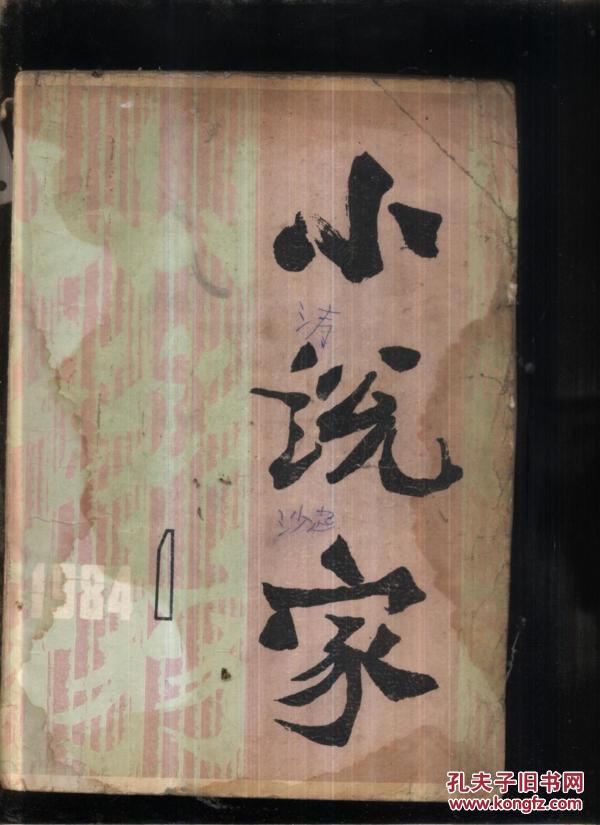 小说家
1984
1
孔夫子旧书网
www.kongfz.com